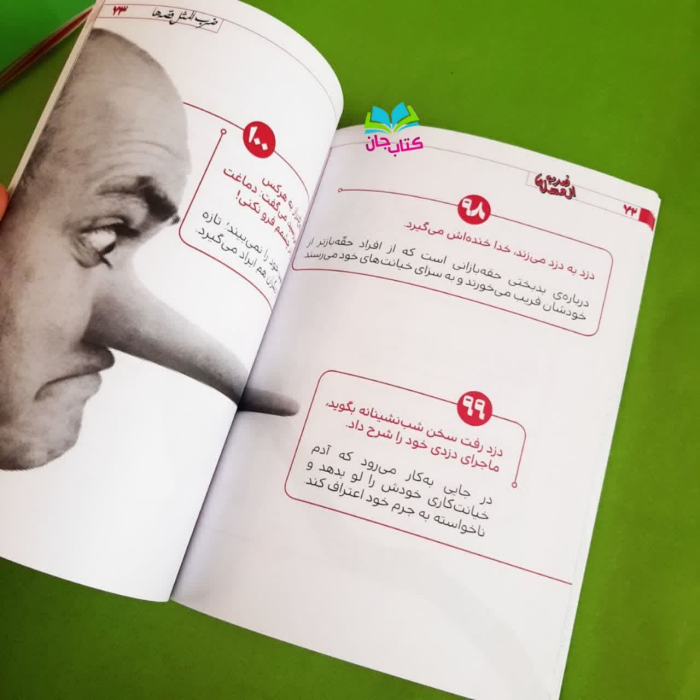 ۷۲
ضرب
المثل‌های
۹۸
دزد به دزد می‌زند، خدا خنده‌اش می‌گیرد.
درباره‌ی بدبختی حقه‌بازانی است که از افراد حقّه‌بازتر از
خودشان فریب می‌خورند و به سزای خیانت‌های خود می‌رسند
۹۹
دزد رفت سخن شب‌نشینانه بگوید،
ماجرای دزدی خود را شرح داد.
در جایی به‌کار می‌رود که آدم
خیانت‌کاری خودش را لو بدهد و
ناخواسته به جرم خود اعتراف کند
ضرب المثل قصه‌ها
۷۳
۱۰۰
به هرکس
می‌گفت: دماغت
فرو نکنی!
خود را نمی‌بیند، تازه
هم ایراد می‌گیرد.
کتاب جان